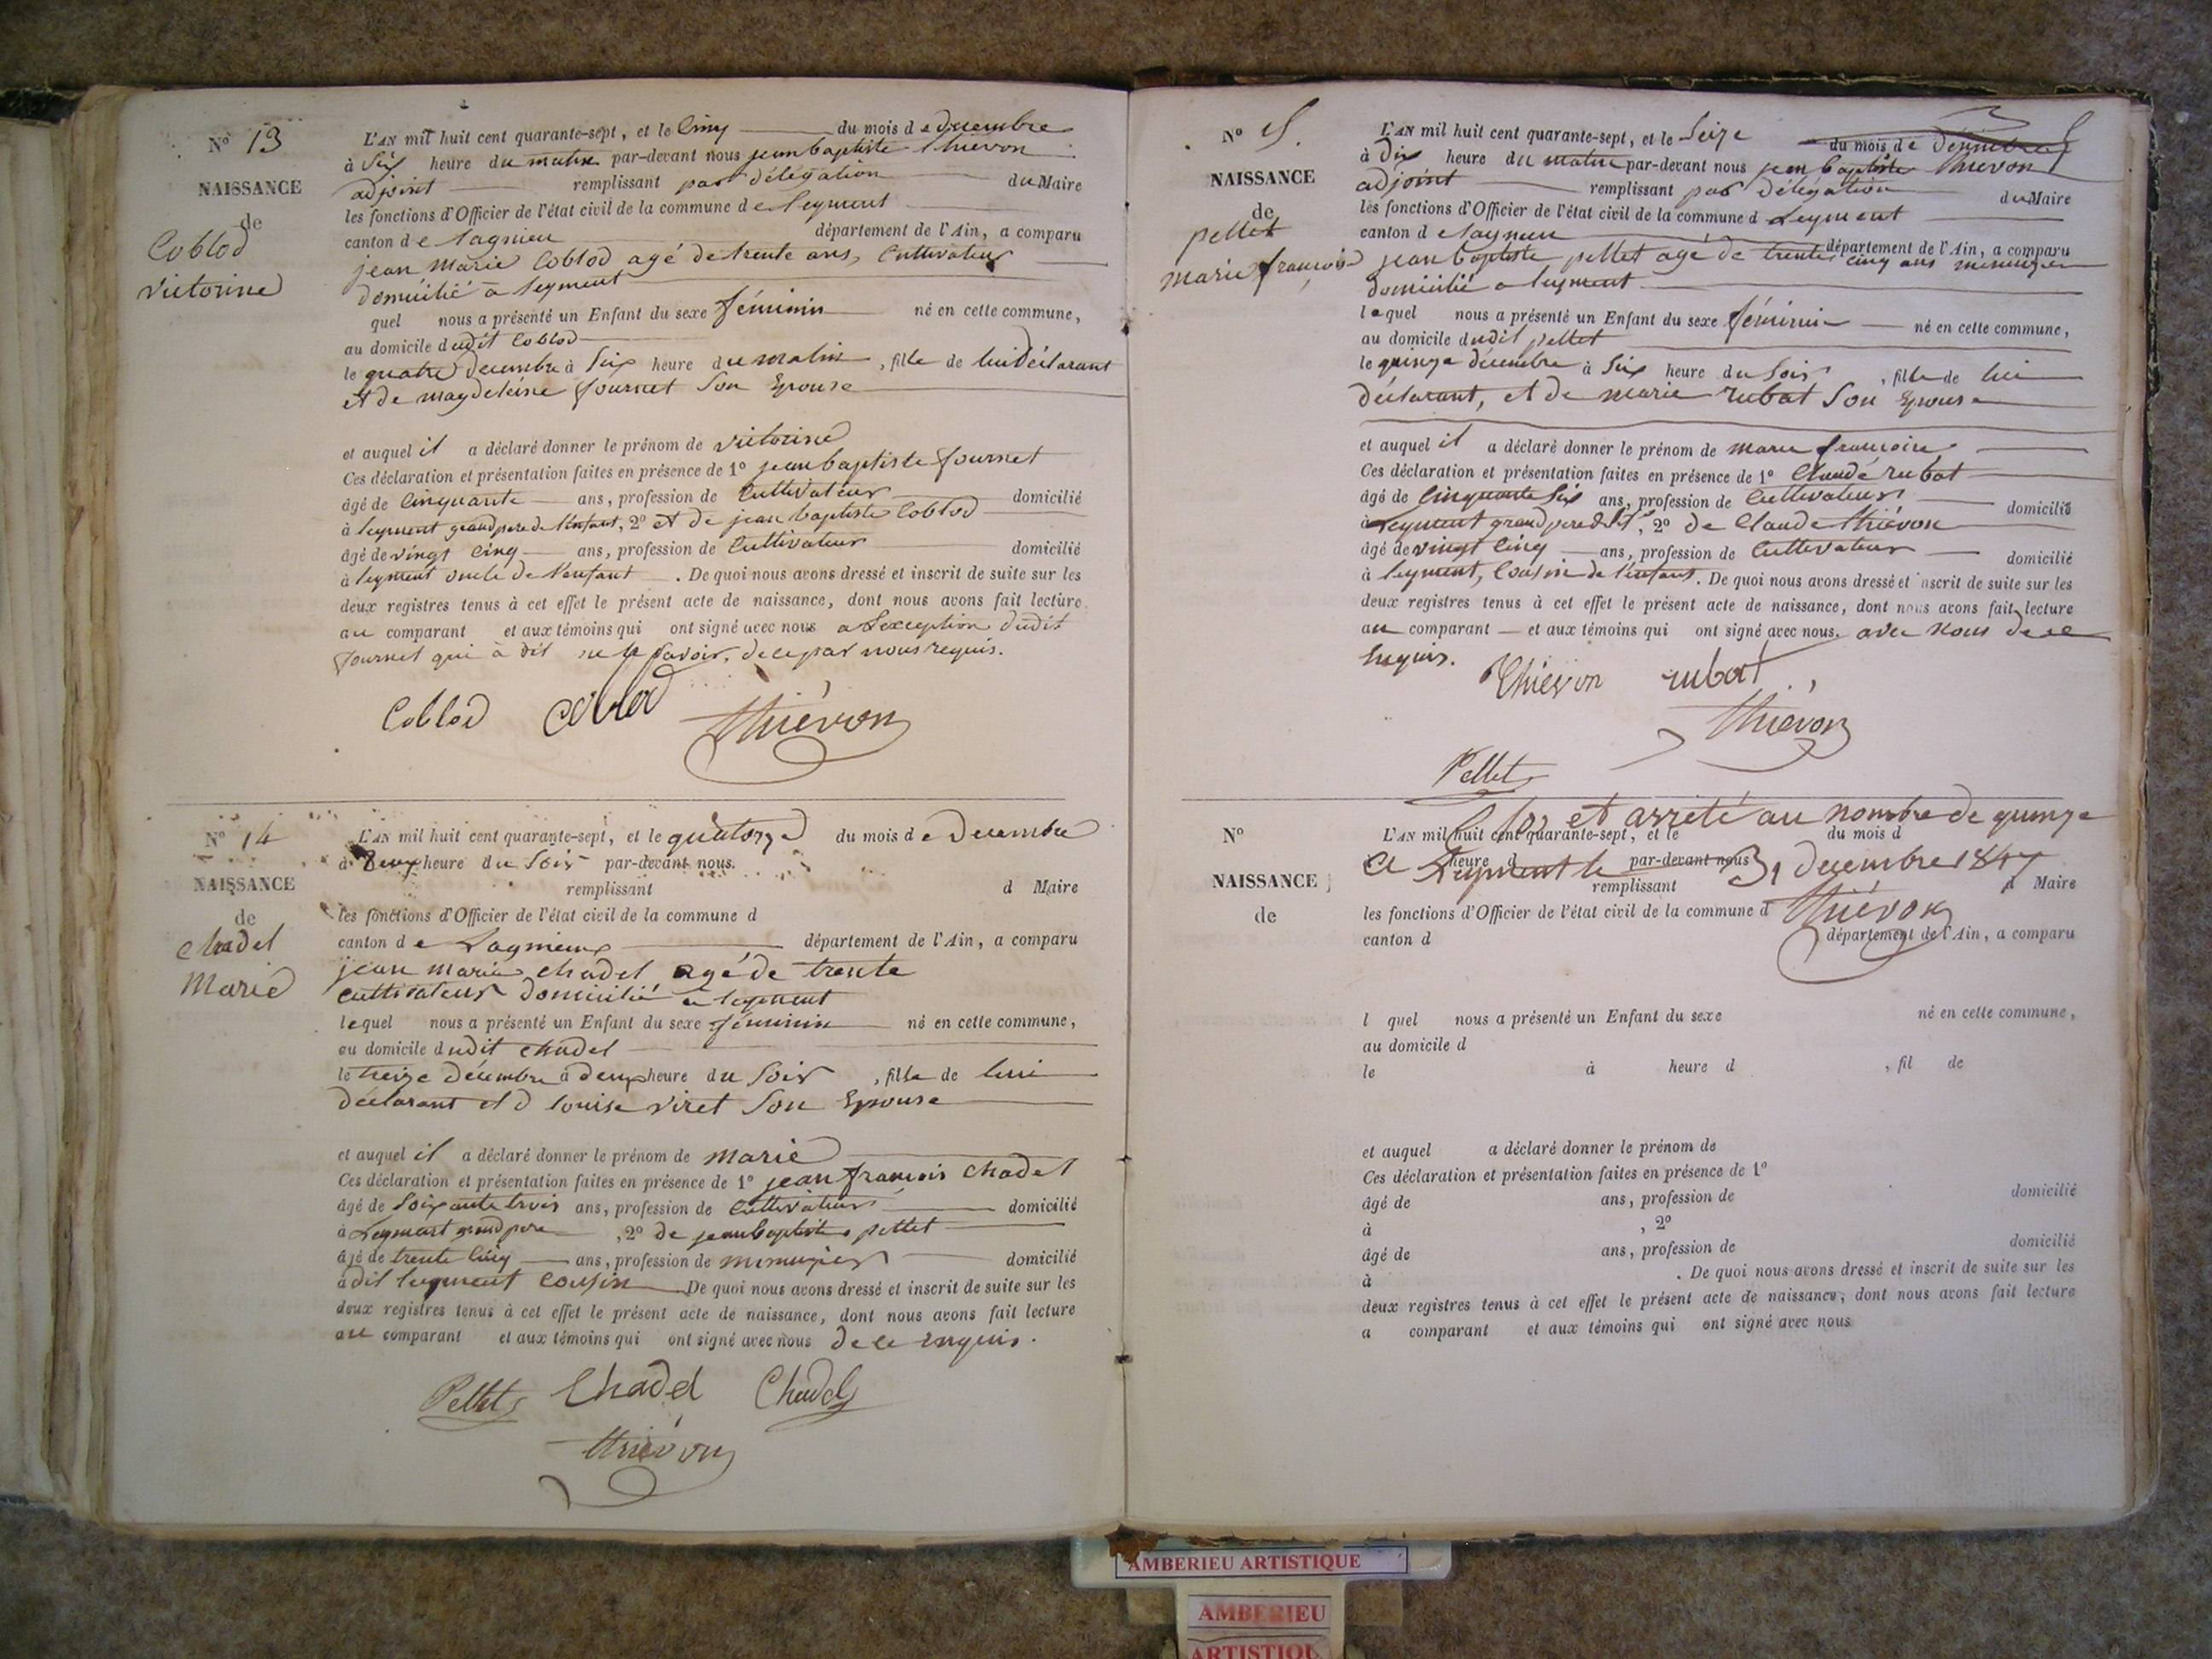 Nº 13
NAISSANCE
de
Coblod
victorine
L'AN mil huit cent quarante-sept, et le Cinq du mois de decembre
à Six heure du matin par-devant nous jean baptiste thievon
adjoint remplissant par délégation du Maire
les fonctions d'Officier de l'état civil de la commune de leyment
canton de lagnieu département de l'Ain, a comparu
jean Marie Coblod agé de trente ans, Cultivateur
domicilié a leyment
quel nous a présenté un Enfant du sexe féminin né en cette commune,
au domicile dudit Coblod
le quatre decembre à Six heure du matin, fille de lui déclarant
et de magdeleine fournet Son Epouse
et auquel il a déclaré donner le prénom de victorine
Ces déclaration et présentation faites en présence de 1º jean baptiste fournet
âgé de Cinquante ans, profession de Cultivateur domicilié
à leyment grand pere de l'enfant, 2º et de jean baptiste Coblod
âgé de vingt Cinq ans, profession de Cultivateur domicilié
à leyment oncle de l'enfant. De quoi nous avons dressé et inscrit de suite sur les
deux registres tenus à cet effet le présent acte de naissance, dont nous avons fait lecture
au comparant et aux témoins qui ont signé avec nous a l'exception dudit
fournet qui à dit ne le Savoir, de ce par nous requis.
Coblod Coblod thiévon
Nº 14
NAISSANCE
de
chadel
Marie
L'AN mil huit cent quarante-sept, et le quatorze du mois de Decembre
à Deux heure du Soir par-devant nous.
remplissant d Maire
les fonctions d'Officier de l'état civil de la commune d
canton de Lagnieu département de l'Ain, a comparu
jean marie chadel agé de trente
cultivateur domicilié a leyment
lequel nous a présenté un Enfant du sexe féminin né en cette commune,
au domicile dudit chadel
le treize décembre à deux heure du Soir, fille de lui
déclarant et d louise viret Son Epouse
et auquel il a déclaré donner le prénom de marie
Ces déclaration et présentation faites en présence de 1º jean francois chadel
âgé de Soixante trois ans, profession de Cultivateur domicilié
à Leyment grand pere, 2º de jean baptiste pellet
âgé de trente Cinq ans, profession de menuzier domicilié
à dit leyment cousin De quoi nous avons dressé et inscrit de suite sur les
deux registres tenus à cet effet le présent acte de naissance, dont nous avons fait lecture
au comparant et aux témoins qui ont signé avec nous de ce enquis.
Pellet Chadel Chadel
thiévon
Nº
NAISSANCE
de
pellet
marie francoise
L'AN mil huit cent quarante-sept, et le Seize du mois de
à Dix heure du matin par-devant nous jean baptiste thievon
adjoint remplissant par délégation du Maire
les fonctions d'Officier de l'état civil de la commune d Leyment
canton de lagnieu département de l'Ain, a comparu
jean baptiste pellet agé de trente cinq ans menuzier
domicilié a leyment
lequel nous a présenté un Enfant du sexe féminin né en cette commune,
au domicile dudit pellet
le quinze décembre à Six heure du Soir, fille de lui
déclarant, et de marie rubat Son Epouse
et auquel il a déclaré donner le prénom de marie francoise
Ces déclaration et présentation faites en présence de 1º Claude rubat
âgé de Cinquante Six ans, profession de Cultivateur domicilié
à Leyment grand pere, 2º de Claude thiévon
âgé de vingt Cinq ans, profession de Cultivateur domicilié
à leyment, Cousin de l'enfant. De quoi nous avons dressé et inscrit de suite sur les
deux registres tenus à cet effet le présent acte de naissance, dont nous avons fait lecture
au comparant et aux témoins qui ont signé avec nous. avec nous de ce
Enquis.
Thiévon rubat
thiévon
Pellet
Clos et arreté au nombre de quinze
Nº
L'AN mil huit cent quarante-sept, et le du mois d
à heure d par-devant nous
A Leyment le 31 decembre 1847
NAISSANCE
remplissant d Maire
de
les fonctions d'Officier de l'état civil de la commune d
thiévon
canton d département de l'Ain, a comparu
l quel nous a présenté un Enfant du sexe né en cette commune,
au domicile d
le à heure d , fil de
et auquel a déclaré donner le prénom de
Ces déclaration et présentation faites en présence de 1º
âgé de ans, profession de domicilié
à , 2º
âgé de ans, profession de domicilié
à . De quoi nous avons dressé et inscrit de suite sur les
deux registres tenus à cet effet le présent acte de naissance, dont nous avons fait lecture
a comparant et aux témoins qui ont signé avec nous
AMBERIEU ARTISTIQUE
AMBERIEU
ARTISTIQU